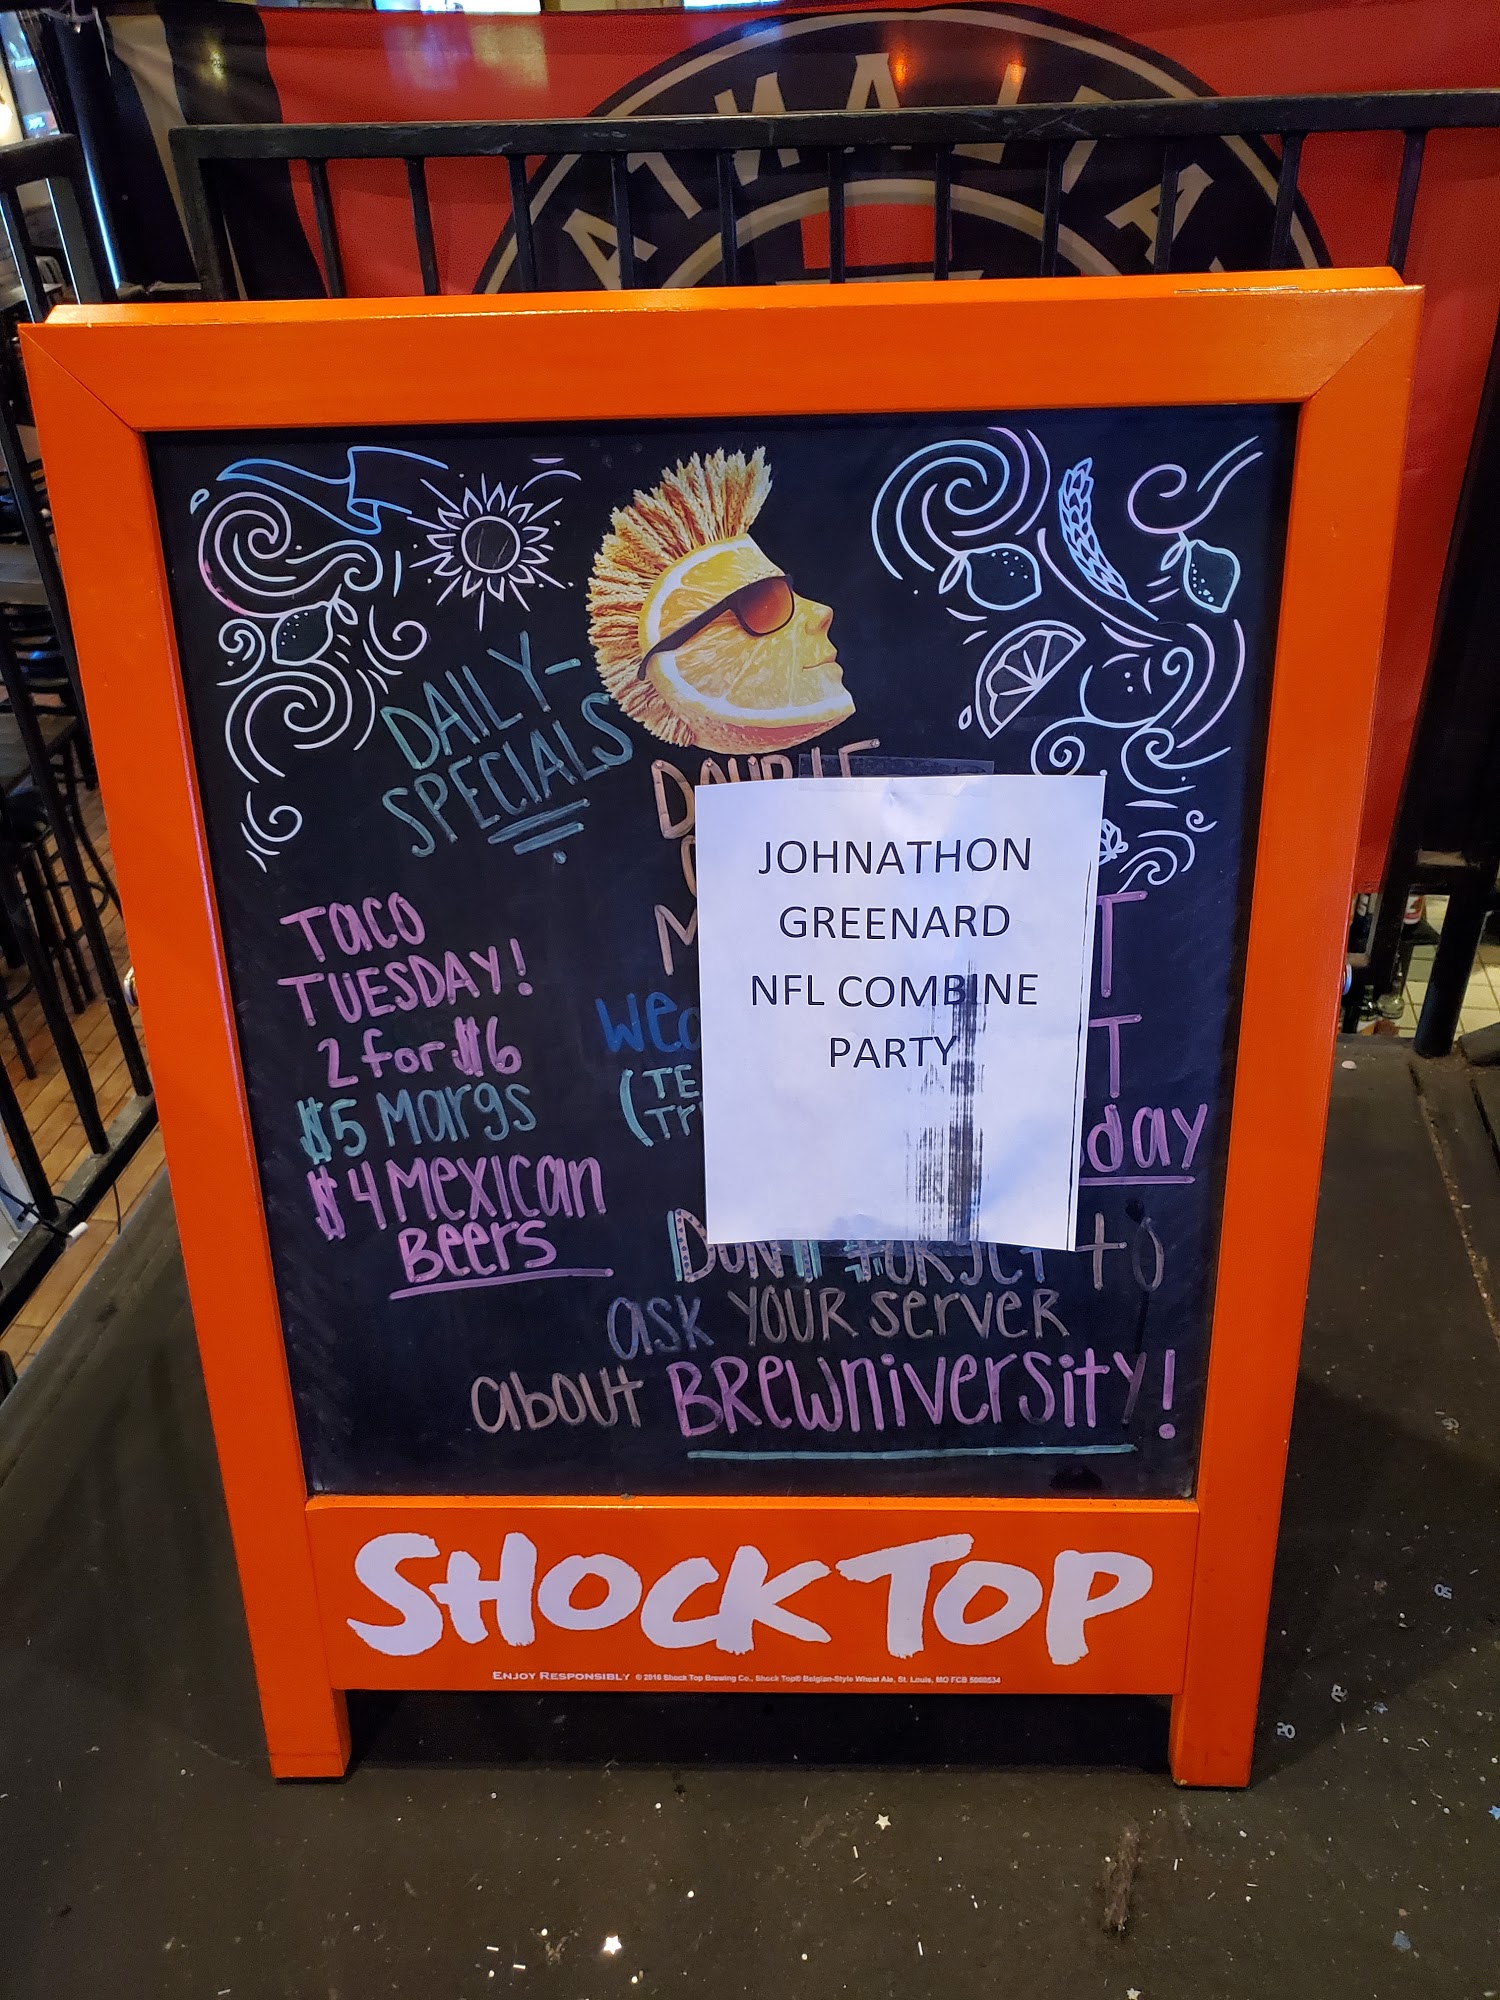 ATLANTA
DAILY-
SPECIALS
DOUBLE
TACO
TUESDAY!
2 for $6
$5 Margs
$4 Mexican
Beers
JOHNATHON
GREENARD
NFL COMBINE
PARTY
day
DON'T FORGET to
ask YOUR server
about BREWniversity!
SHOCK TOP
ENJOY RESPONSIBLY © 2016 Shock Top Brewing Co., Shock Top® Belgian-Style Wheat Ale, St. Louis, MO